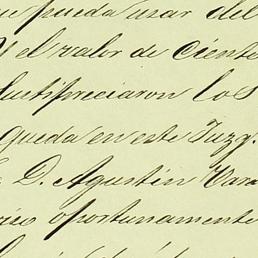 que pueda usar del
y el valor de Ciento
Justipreciaron los
queda en este Juzg.
D. Agustin Vara
oportunamente